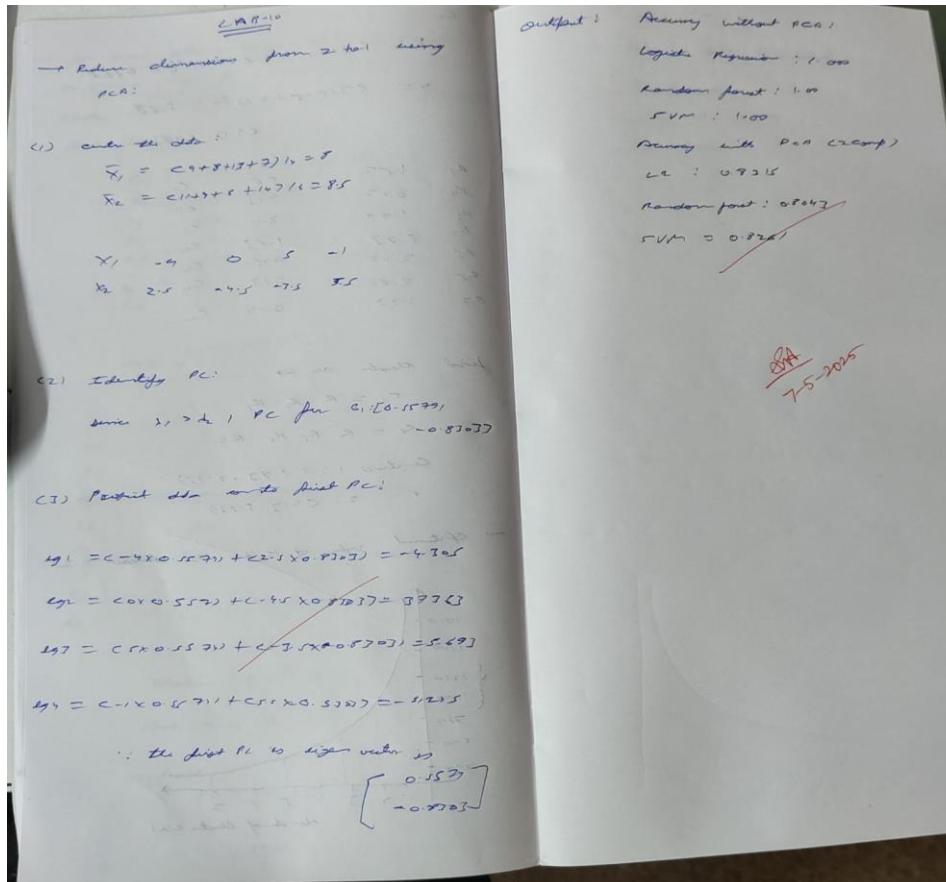 LAB-10
→ Reduce dimensions from 2 to 1 using
PCA:
(1) center the data:
x̄₁ = (4+8+13+7)/4 = 8
x̄₂ = (11+4+5+14)/4 = 8.5
X₁ -4 0 5 -1
X₂ 2.5 -4.5 -3.5 5.5
(2) Identify PC:
since λ₁ > λ₂, PC for e₁: [0.5574,
-0.8303]
(3) Project data onto first PC:
eg1 = (-4×0.5574) + (2.5×0.8303) = -4.305
eg2 = (0×0.5574) + (-4.5×0.8303) = 3.7363
eg3 = (5×0.5574) + (-3.5×-0.8303) = 5.693
eg4 = (-1×0.5574) + (5.5×0.8303) = -5.125
∴ the first PC is eigen vector is
[0.5574
-0.8303]
Output: Accuracy without PCA:
Logistic Regression: 1.000
Random forest: 1.00
SVM: 1.00
Accuracy with PCA (2 comp)
LR: 0.8315
Random forest: 0.8043
SVM = 0.8261
7-5-2025